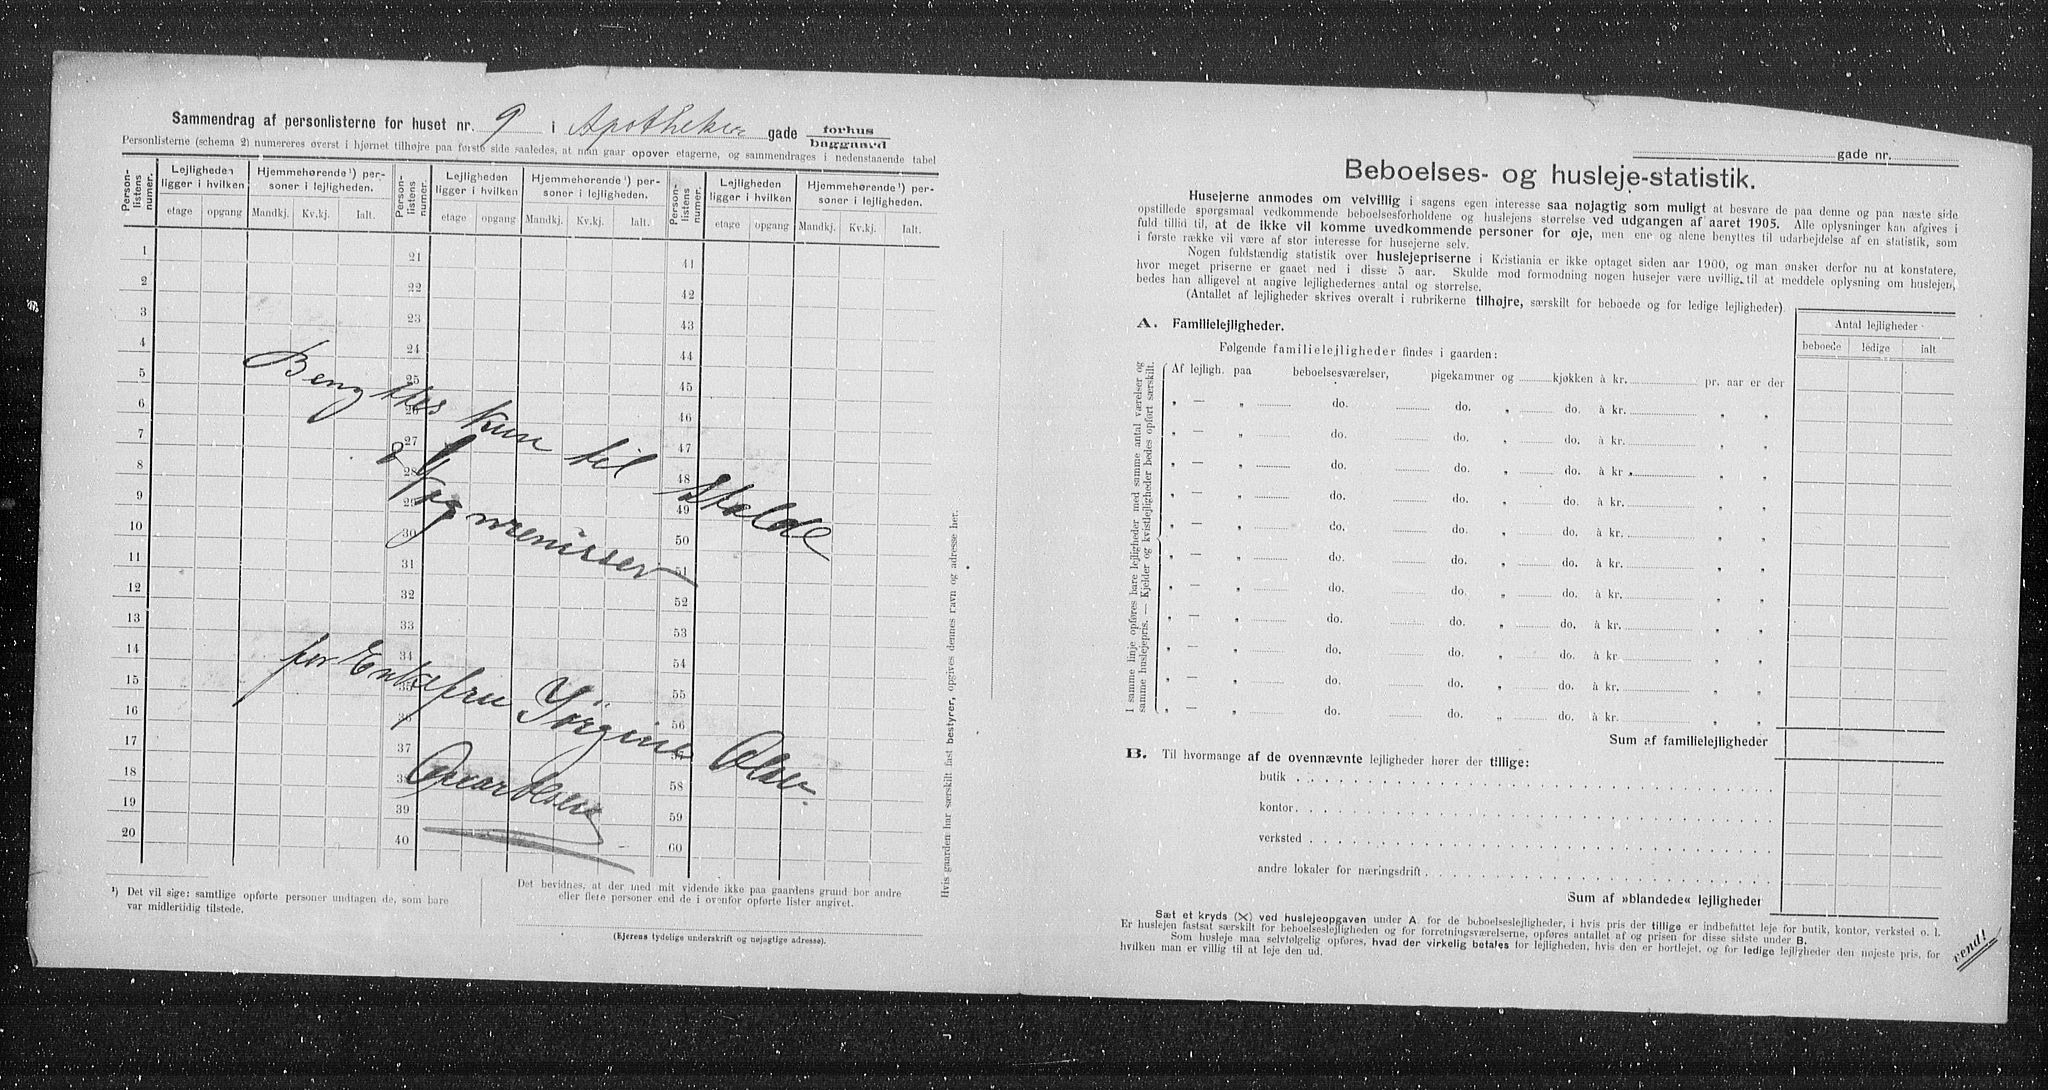 Sammendrag af personlisterne for huset nr. 9 i Apotheker gade forhus
baggaard
Personlisterne (schema 2) numereres øverst i hjørnet tilhøjre paa første side saaledes, at man gaar opover etagerne, og sammendrages i nedenstaaende tabel
Person-listens numer.
Lejligheden ligger i hvilken
Hjemmehørende¹) personer i lejligheden.
etage opgang Mandkj. Kv.kj. Ialt.
Person-listens numer.
Lejligheden ligger i hvilken
Hjemmehørende¹) personer i lejligheden.
etage opgang Mandkj. Kv.kj. Ialt.
Person-listens numer.
Lejligheden ligger i hvilken
Hjemmehørende¹) personer i lejligheden.
etage opgang Mandkj. Kv.kj. Ialt.
1 21 41
2 22 42
3 23 43
4 24 44
5 25 45
6 26 46
7 27 47
8 28 48
9 29 49
10 30 50
11 31 51
12 32 52
13 33 53
14 34 54
15 35 55
16 36 56
17 37 57
18 38 58
19 39 59
20 40 60
Benyttes kun til Stalde
& Vognremisser
for Enkefru Jørgine Olsen
Oscar Olsen
¹) Det vil sige: samtlige opførte personer undtagen de, som bare
var midlertidig tilstede.
Det bevidnes, at der med mit vidende ikke paa gaardens grund bor andre
eller flere personer end de i ovenfor opførte lister angivet.
(Ejerens tydelige underskrift og nøjagtige adresse).
Hvis gaarden har særskilt fast bestyrer, opgives dennes navn og adresse her.
gade nr.
Beboelses- og husleje-statistik.
Husejerne anmodes om velvillig i sagens egen interesse saa nøjagtig som muligt at besvare de paa denne og paa næste side
opstillede spørgsmaal vedkommende beboelsesforholdene og huslejens størrelse ved udgangen af aaret 1905. Alle oplysninger kan afgives i
fuld tillid til, at de ikke vil komme uvedkommende personer for øje, men ene og alene benyttes til udarbejdelse af en statistik, som
i første række vil være af stor interesse for husejerne selv.
Nogen fuldstændig statistik over huslejepriserne i Kristiania er ikke optaget siden aar 1900, og man ønsker derfor nu at konstatere,
hvor meget priserne er gaaet ned i disse 5 aar. Skulde mod formodning nogen husejer være uvillig til at meddele oplysning om huslejen,
bedes han alligevel at angive lejlighedernes antal og størrelse.
(Antallet af lejligheder skrives overalt i rubrikerne tilhøjre, særskilt for beboede og for ledige lejligheder)
A. Familielejligheder.
Følgende familielejligheder findes i gaarden:
Antal lejligheder
beboede ledige ialt
I samme linje opføres bare lejligheder med samme antal værelser og
samme huslejepris. — Kjelder og kvistlejligheder bedes opført særskilt.
Af lejligh. paa beboelsesværelser, pigekammer og kjøkken à kr. pr. aar er der
„ — „ do. do. „ do. à kr. „ „
„ — „ do. do. „ do. à kr. „ „
„ — „ do. do. „ do. à kr. „ „
„ — „ do. do. „ do. à kr. „ „
„ — „ do. do. „ do. à kr. „ „
„ — „ do. do. „ do. à kr. „ „
„ — „ do. do. „ do. à kr. „ „
„ — „ do. do. „ do. à kr. „ „
„ — „ do. do. „ do. à kr. „ „
„ — „ do. do. „ do. à kr. „ „
„ — „ do. do. „ do. à kr. „ „
Sum af familielejligheder
B. Til hvormange af de ovennævnte lejligheder hører der tillige:
butik
kontor
verksted
andre lokaler for næringsdrift
Sum af »blandede« lejligheder
Sæt et kryds (X) ved huslejeopgaven under A. for de beboelseslejligheder, i hvis pris der tillige er indbefattet leje for butik, kontor, verksted o. l.
Er huslejen fastsat særskilt for beboelseslejligheden og for forretningsværelserne, opføres antallet af og prisen for disse sidste under B.
Som husleje maa selvfølgelig opføres, hvad der virkelig betales for lejligheden, hvis den er bortlejet, og for ledige lejligheder den nøjeste pris, for
hvilken man er villig til at leje den ud.
vend!